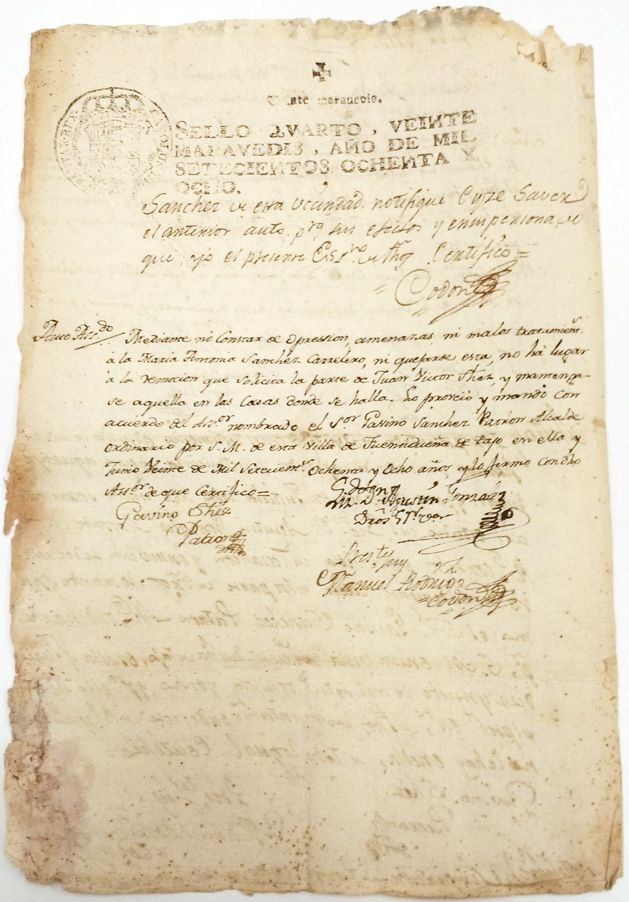 Veinte maravedis.
SELLO QVARTO, VEINTE
MARAVEDIS, AÑO DE MIL
SETECIENTOS OCHENTA Y
OCHO.
Sanchez de esta vecindad notifique è yze saver
el anterior auto pra sus efectos y en su persona, de
que, yo el presente Essno de fhos Certifico =
Codon
Auto Assdo Mediante nó Constar de Opression, amenazas, ni malos tratamientos
à la Maria Antonia Sanchez Carralero, ni quejarse esta, no há lugar
à la remocion que solicita la parte de Juan Victor Shêz y mantenga-
se aquella en las Casas donde se halla. Lo proveió y mandó con
acuerdo del Assor nombrado el Sor Gavino Sanchez Patron Alcalde
Ordinario por S. M. de esta Villa de Fuentidueña de tajo en ella y
Junio Veinte de Mil Setecientos Ochenta y Ocho años y lo firmo con dho
Assor de que Certifico =
Gavino Shez
Patron
Agustin Gonzalez
Manuel Rodrigz
Codon